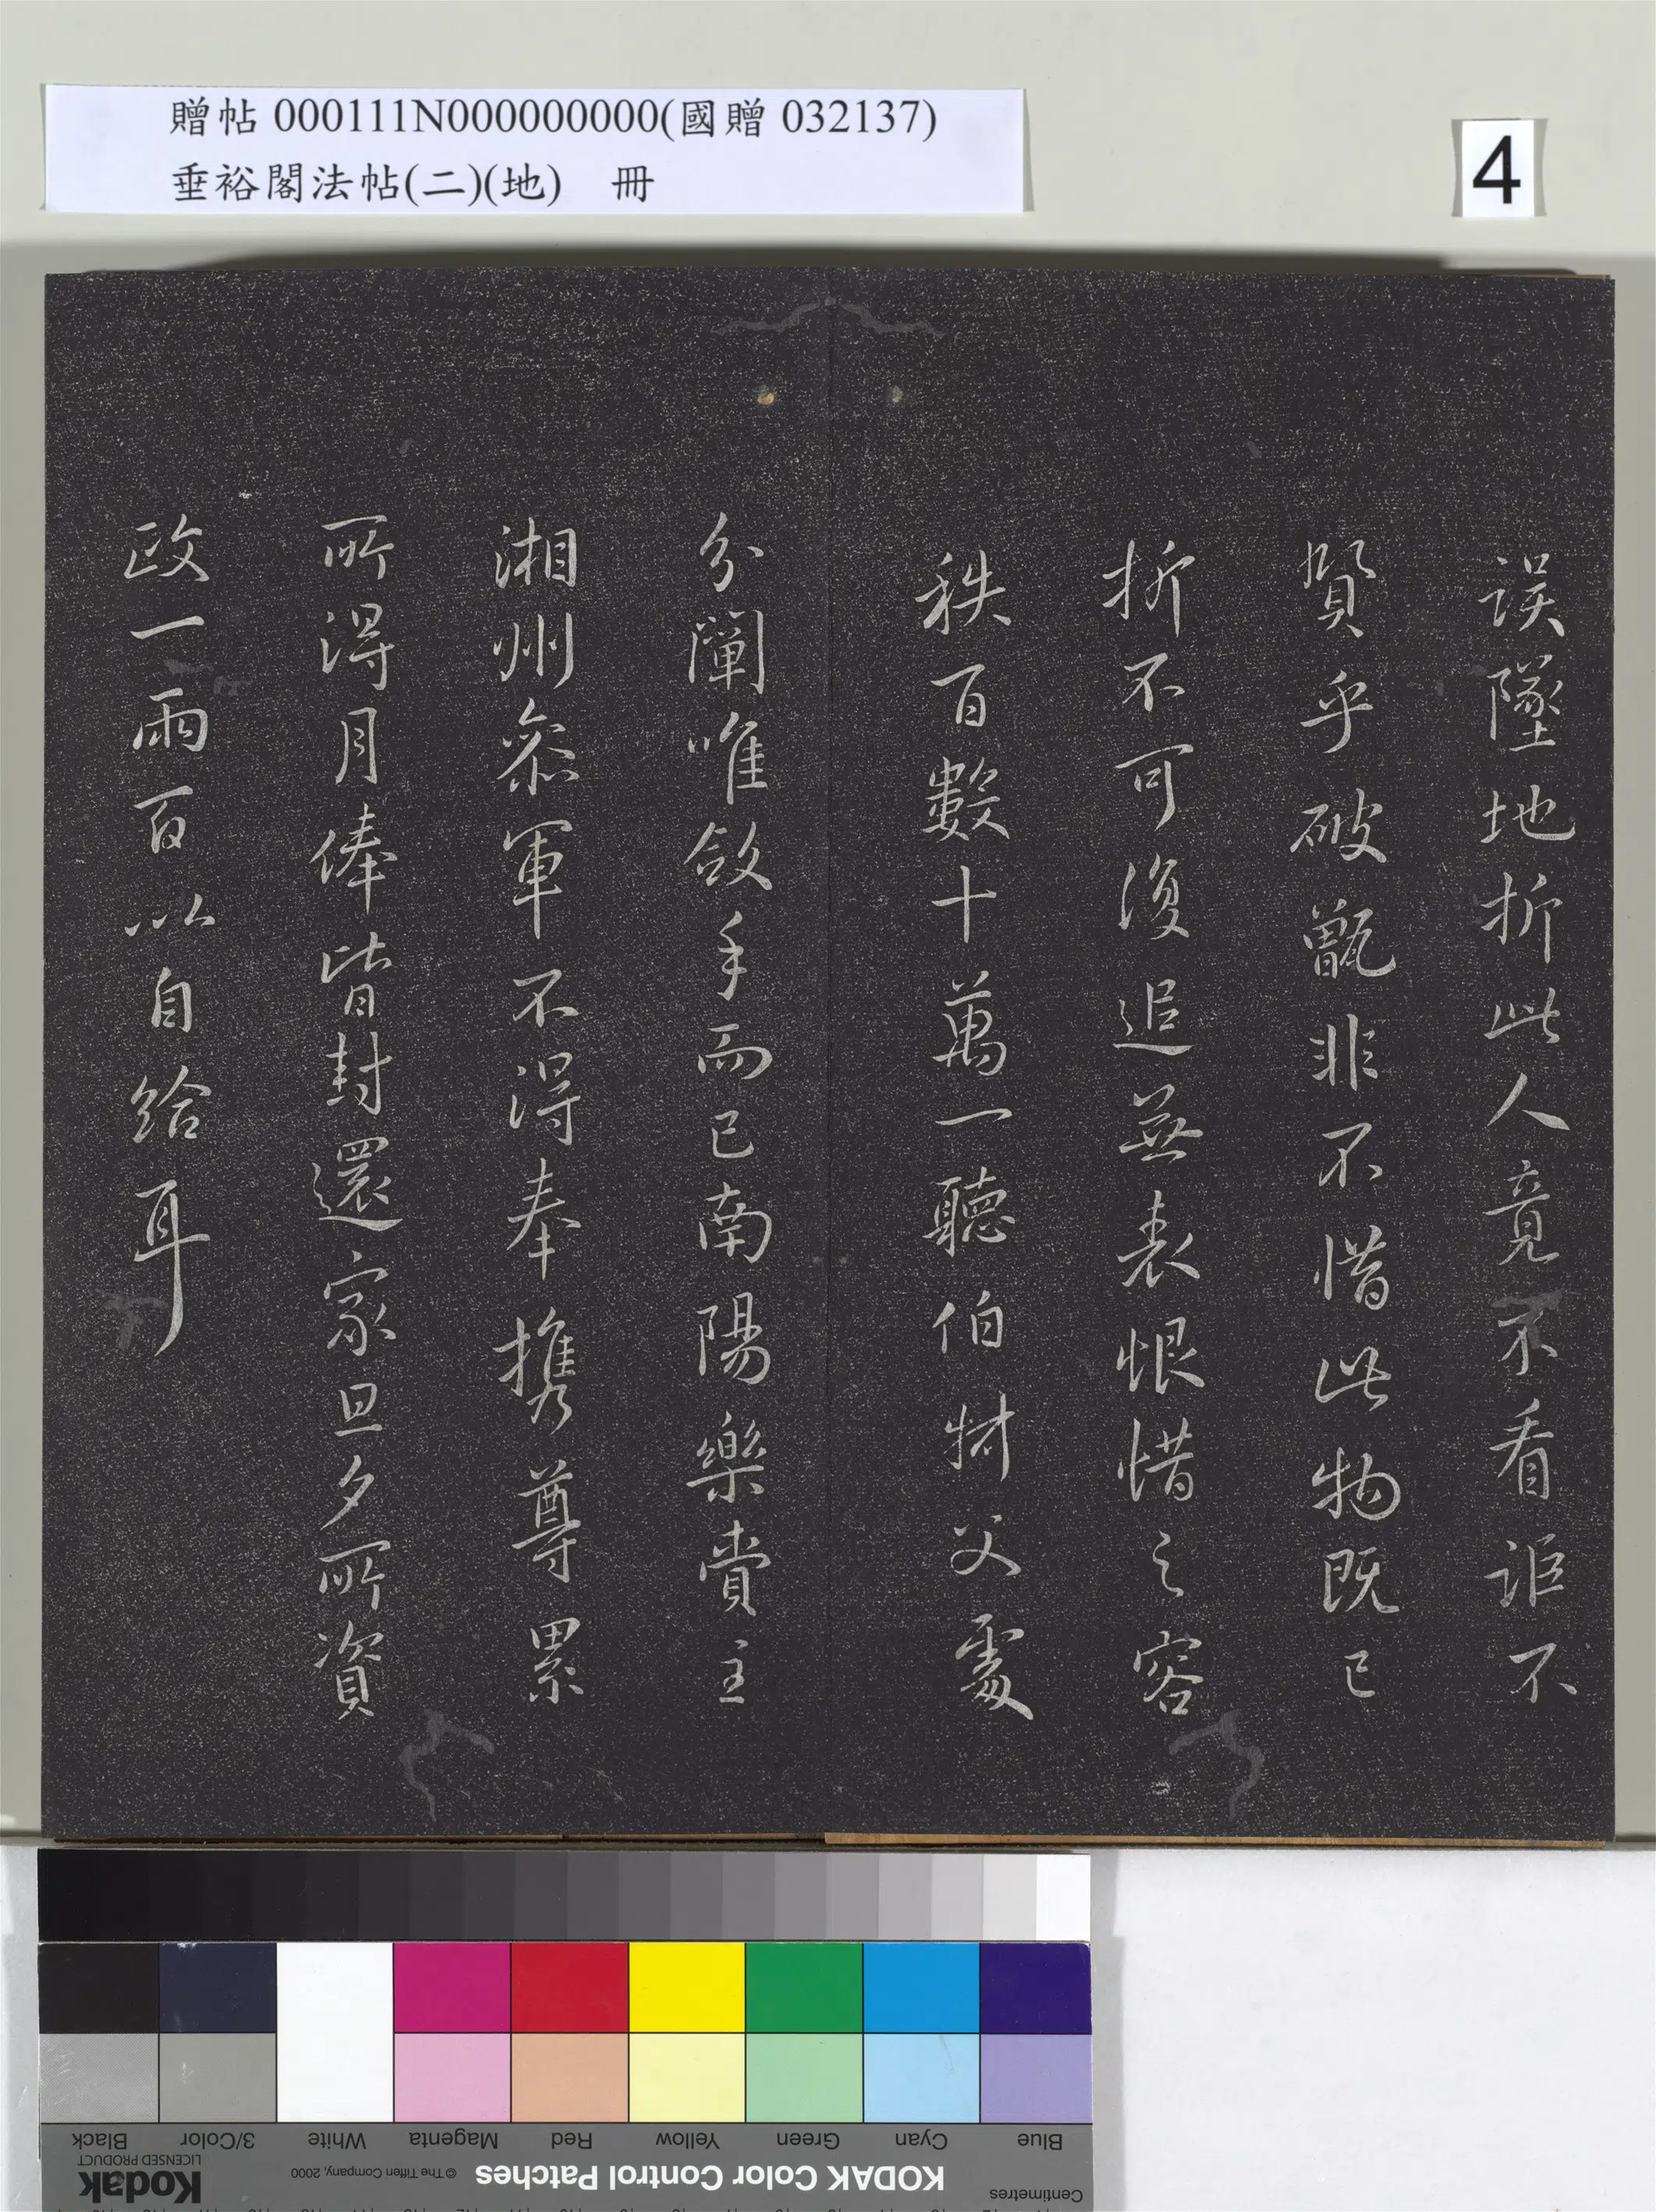 贈帖 000111N000000000(國贈 032137)
垂裕閣法帖(二)(地) 冊
4
誤墜地折此人竟不看詎不
賢乎破甑非不惜此物既已
折不可復追並無表恨惜之容
秩百數十萬一聽伯財父處
分闡唯斂手而已南陽樂賞主
湘州參軍不得奉攜尊累
所得月俸皆封還家旦夕所資
政一兩百以自給耳
Black
3/Color
White
Magenta
Red
Yellow
Green
Cyan
Blue
Kodak
LICENSED PRODUCT
© The Tiffen Company, 2000
KODAK Color Control Patches
Centimetres